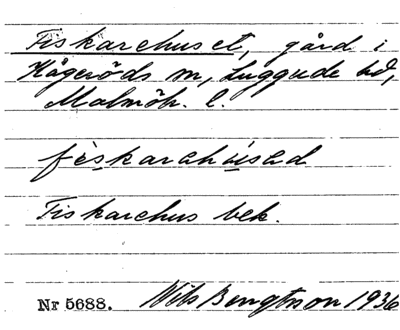 Fiskarehuset, gård i
Kågeröds sn, Luggude hd,
Malmöh. l.
Fiskarehus bek.
Nr 5688. Nils Bengtsson 1936